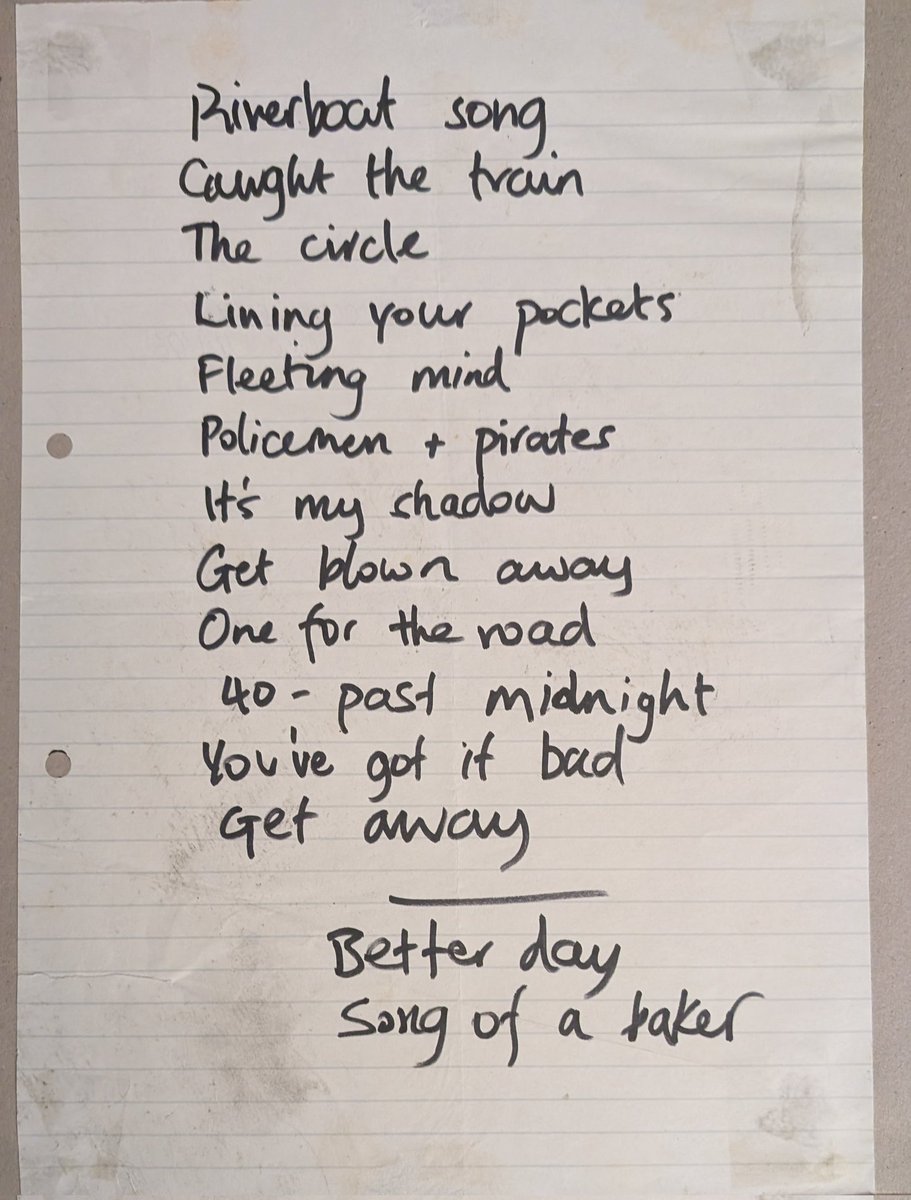 Riverboat song
Caught the train
The circle
Lining your pockets
Fleeting mind
Policemen + pirates
It's my shadow
Get blown away
One for the road
40 - past midnight
You've got it bad
Get away
Better day
Song of a baker